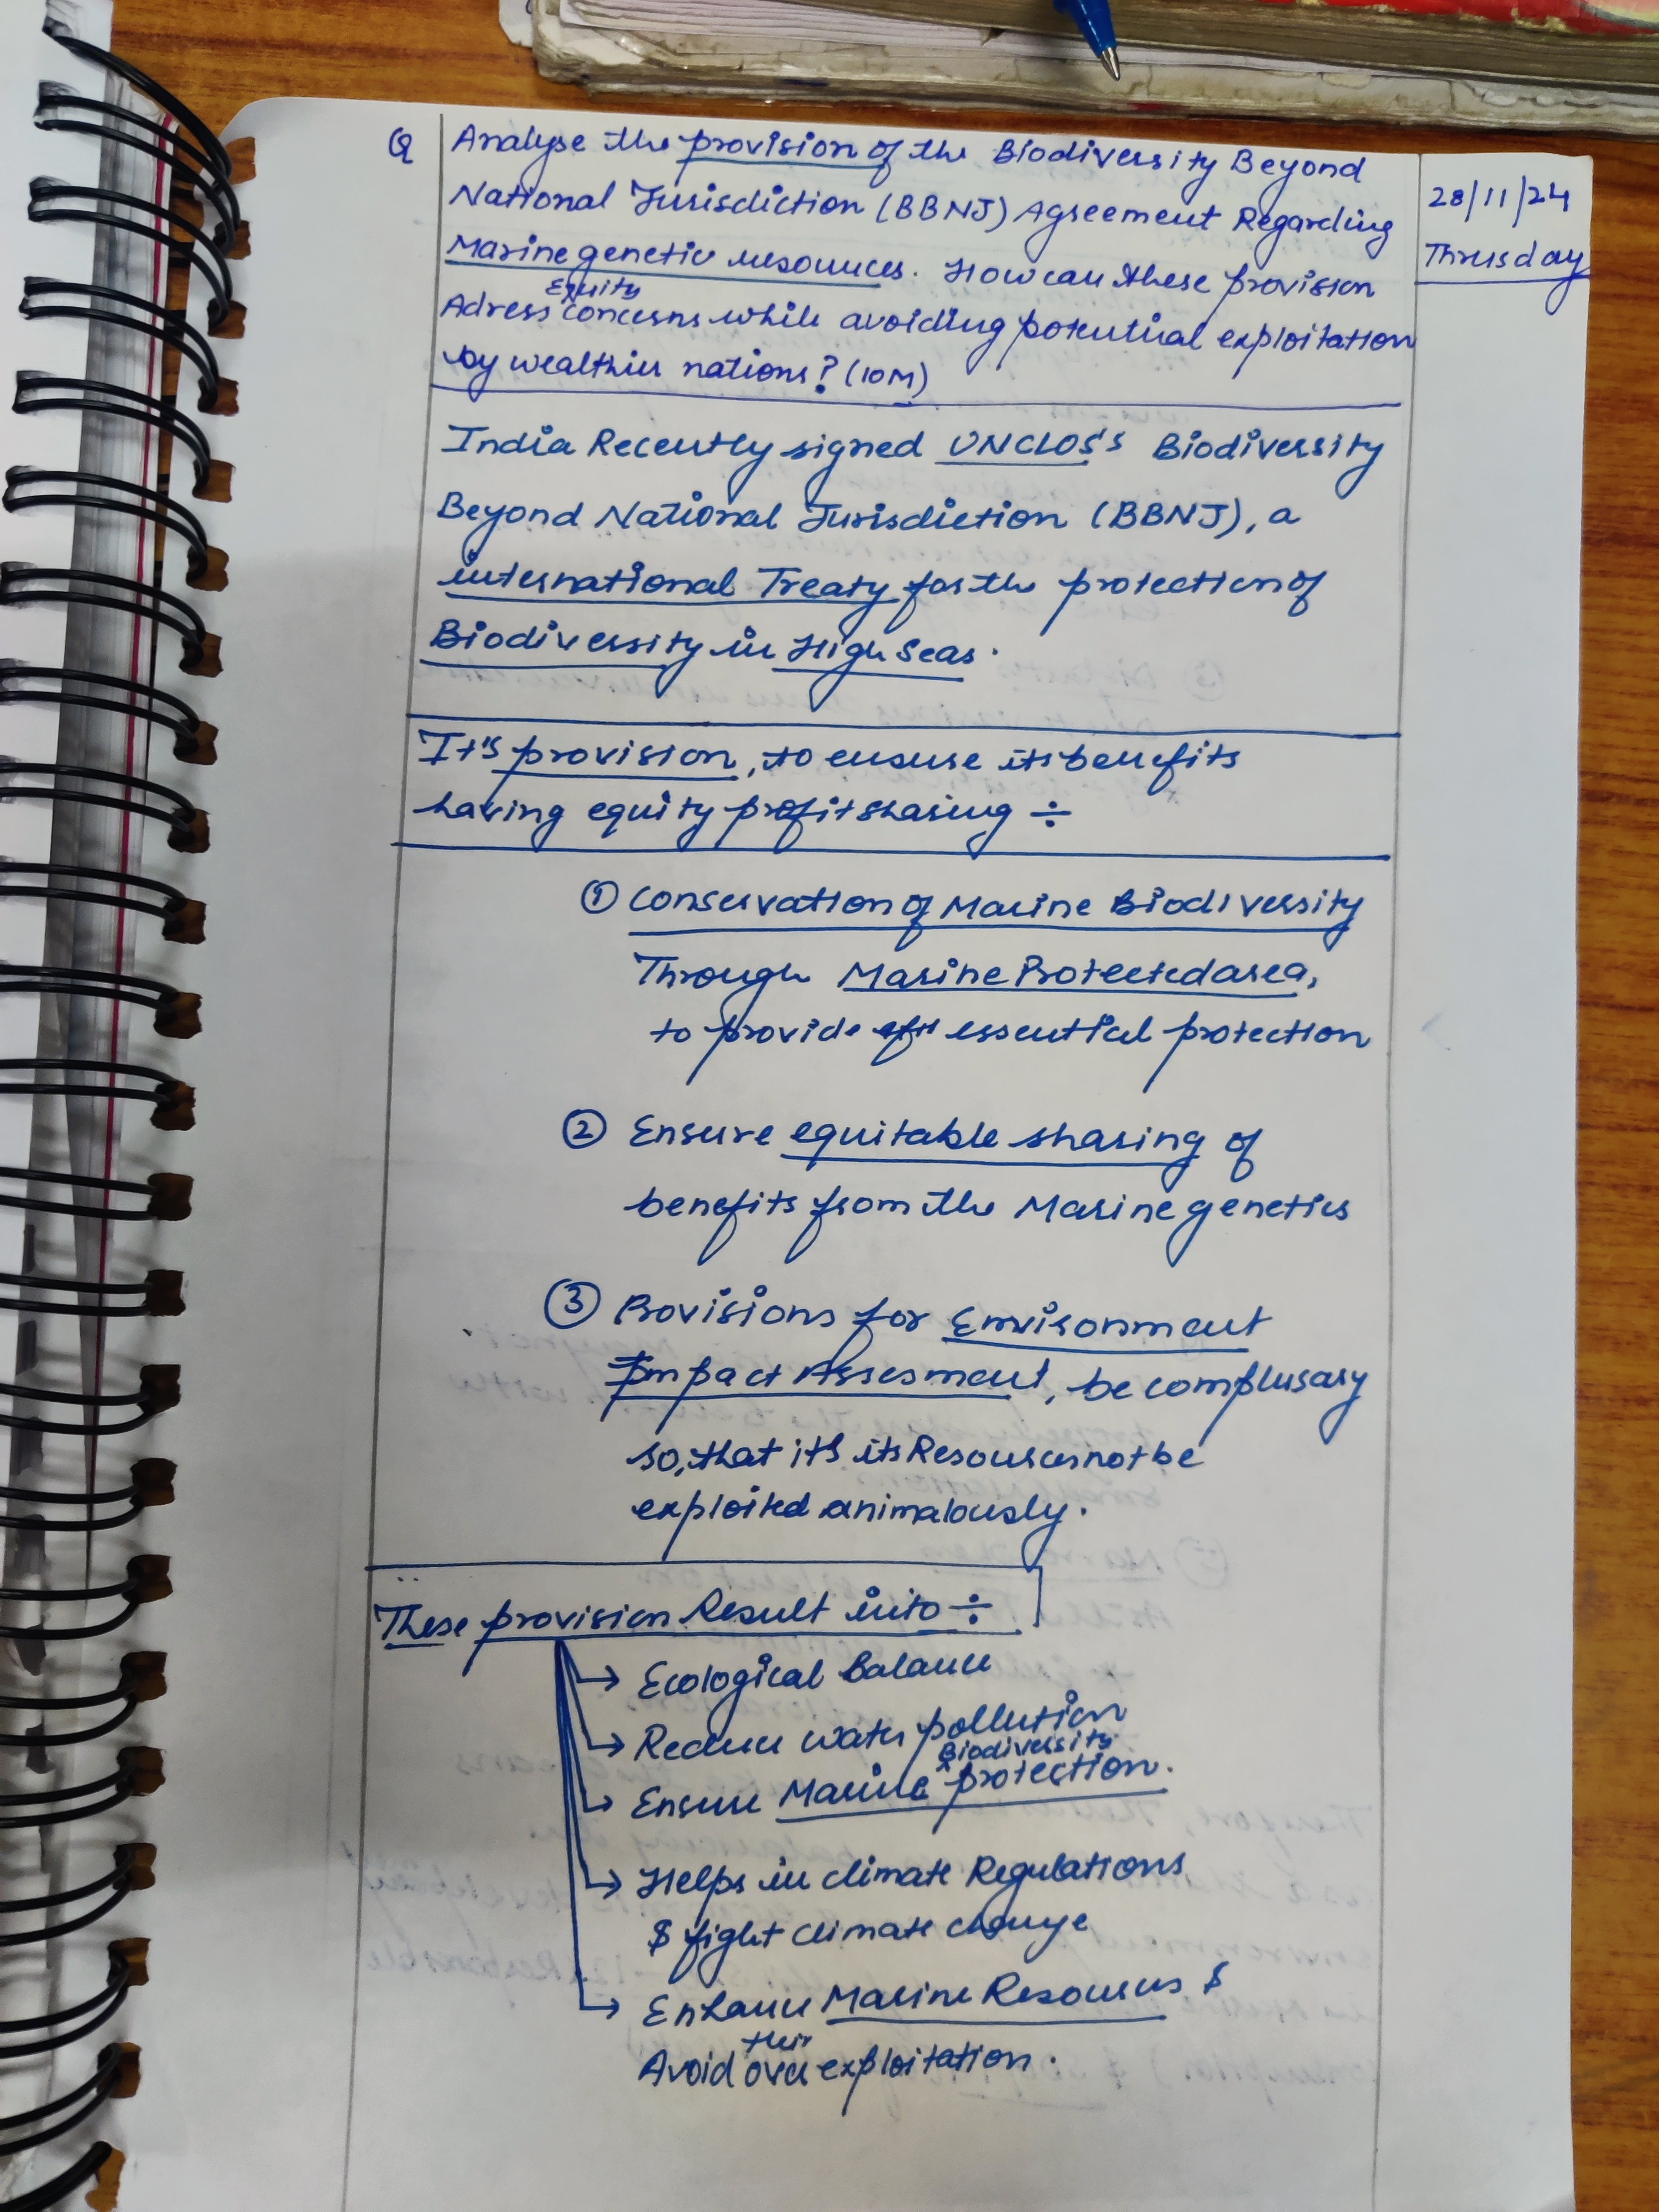 Q Analyse the provision of the Biodiversity Beyond
National Jurisdiction (BBNJ) Agreement Regarding
Marine genetic resources. How can these provision
Adress Equity concerns while avoiding potential exploitation
by wealthier nations? (10M)
28/11/24
Thrusday
India Recently signed UNCLOS's Biodiversity
Beyond National Jurisdiction (BBNJ), a
international Treaty for the protection of
Biodiversity in High Seas.
It's provision, to ensure its benefits
having equity profit sharing ÷
① Conservation of Marine Biodiversity
Through Marine Protected area,
to provide essential protection
② Ensure equitable sharing of
benefits from the Marine genetics
③ Provisions for Environment
Impact Assesment, be complusary
so, that its Resources not be
exploited animalously.
These provision Result into ÷
→ Ecological Balance
→ Reduce water pollution
→ Ensure Marine Biodiversity protection.
→ Helps in climate Regulations
$ fight climate change
→ Enhance Marine Resources $
Avoid their over exploitation.